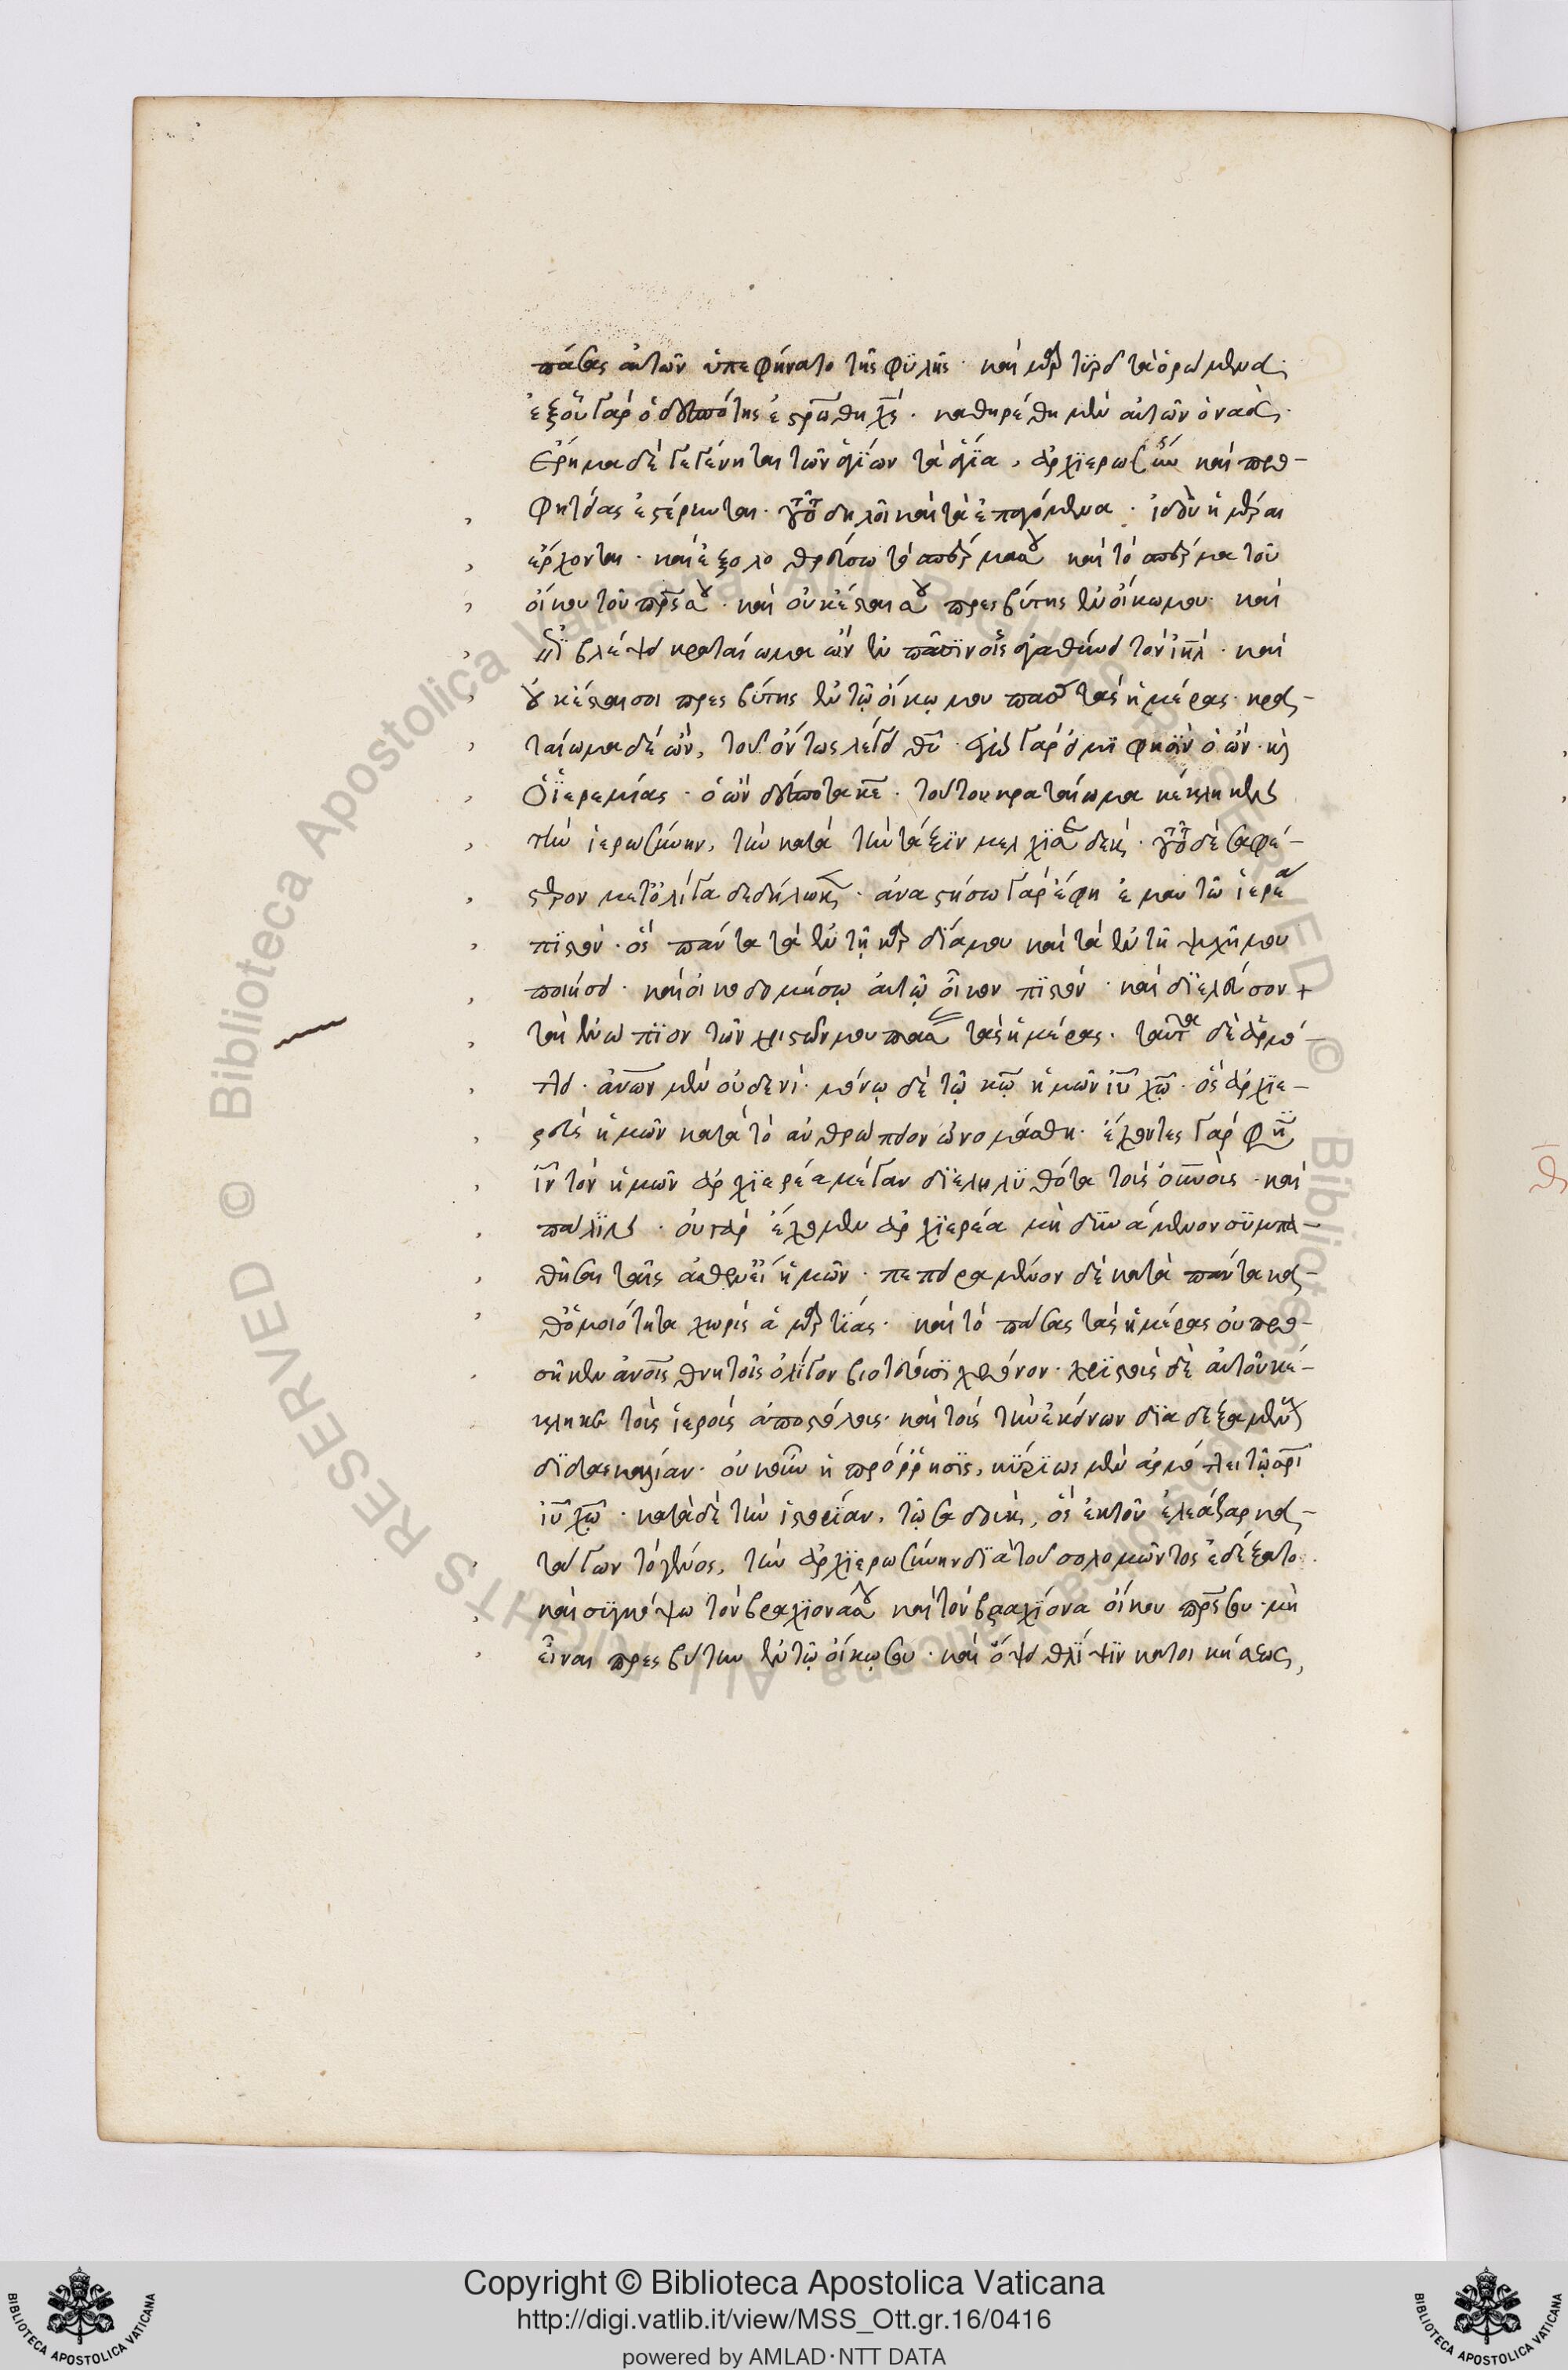 πάσης αὐτῶν ὑπεφήνατο τῆς φυλῆς· καὶ μαρτυρεῖ τὰ ὁρώμενα·
ἐξ οὗ γὰρ ὁ δεσπότης ἐσταυρώθη χς· καθηρέθη μὲν αὐτῶν ὁ ναός·
ἔρημα δὲ γεγένηται τῶν ἁγίων τὰ ἅγια, ἀρχιερωσύνης καὶ προ-
φητείας ἐστέρηνται· τοῦτο δηλοῖ καὶ τὰ ἐπαγόμενα· ἰδοὺ ἡμέραι
ἔρχονται· καὶ ἐξολοθρεύσω τὸ σπέρμα σου καὶ τὸ σπέρμα τοῦ
οἴκου τοῦ πρς σου· καὶ οὐκ ἔσται σου πρεσβύτης ἐν οἴκω μου· καὶ
ἐπιβλέψει κραταίωμα ὢν ἐν πᾶσιν οἷς ἀγαθύνει τὸν ιηλ· καὶ
οὐκ ἔσται σοι πρεσβύτης ἐν τῷ οἴκῳ μου πάσας τὰς ἡμέρας· κρα-
ταίωμα δὲ ὢν, τοῦ ὄντως λέγει θυ· ἐγὼ γάρ εἰμι φησὶν ὁ ὤν· κὶ
ὁ ἱερεμίας· ὁ ὢν δέσποτα κε· τούτου κραταίωμα κέκληκε
τὴν ἱερωσύνην, τὴν κατὰ τὴν τάξιν μελχισεδέκ· τοῦτο δὲ σαφέ-
στερον μετ' ὀλίγα δεδήλωκεν· ἀναστήσω γὰρ ἔφη ἐμαυτῶ ἱερέα
πιστὸν· ὃς πάντα τὰ ἐν τῇ καρδία μου καὶ τὰ ἐν τῆ ψυχῆ μου
ποιήσει· καὶ οἰκοδομήσω αὐτῷ οἶκον πιστὸν· καὶ διελεύσον+
ται ἐνώπιον τῶν χριστῶν μου πάσας τὰς ἡμέρας· ταῦτα δὲ ἁρμό-
ττει· ἀνων μὲν οὐδενὶ· μόνῳ δὲ τῷ κω ἡμῶν ιυ χω· ὃς ἀρχιε-
ρεὺς ἡμῶν κατὰ τὸ ἀνθρώπειον ὠνομάσθη· ἔχοντες γάρ φησιν
ιν τὸν ἡμῶν ἀρχιερέα μέγαν διεληλυθότα τοὺς οὐνούς· καὶ
πάλιν· οὐ γὰρ ἔχομεν ἀρχιερέα μὴ δυνάμενον συμπα-
θῆσαι ταῖς ἀσθενείαις ἡμῶν· πεπειραμένον δὲ κατὰ πάντα κα-
θ' ὁμοιότητα χωρὶς ἁμαρτίας· καὶ τὸ πάσας τὰς ἡμέρας οὐ προ-
σῆκεν ἀνοις θνητοῖς ὀλίγον βιοτεύουσι χρόνον· χριστοὺς δὲ αὐτοῦ κέ-
κληκε τοὺς ἱεροὺς ἀποστόλους· καὶ τοὺς τὴν ἐκείνων διαδεξαμένους
διδασκαλίαν· οὐκοῦν ἡ πρόρρησις, κυρίως μὲν ἁρμόττει τῷ σρι
ιυ χω· κατὰ δὲ τὴν ἱστορίαν, τῷ σαδοὺκ, ὃς ἐκ τοῦ ἐλεάζαρ κα-
τάγων τὸ γένος, τὴν ἀρχιερωσύνην διὰ τοῦ σολομῶντος ἐδέξατο·
καὶ συγκόψω τὸν βραχίονά σου καὶ τὸν βραχίονα οἴκου πρς σου· μὴ
εἶναι πρεσβύτην ἐν τῷ οἴκω σου· καὶ ὄψει θλίψιν κατοικήσεως,